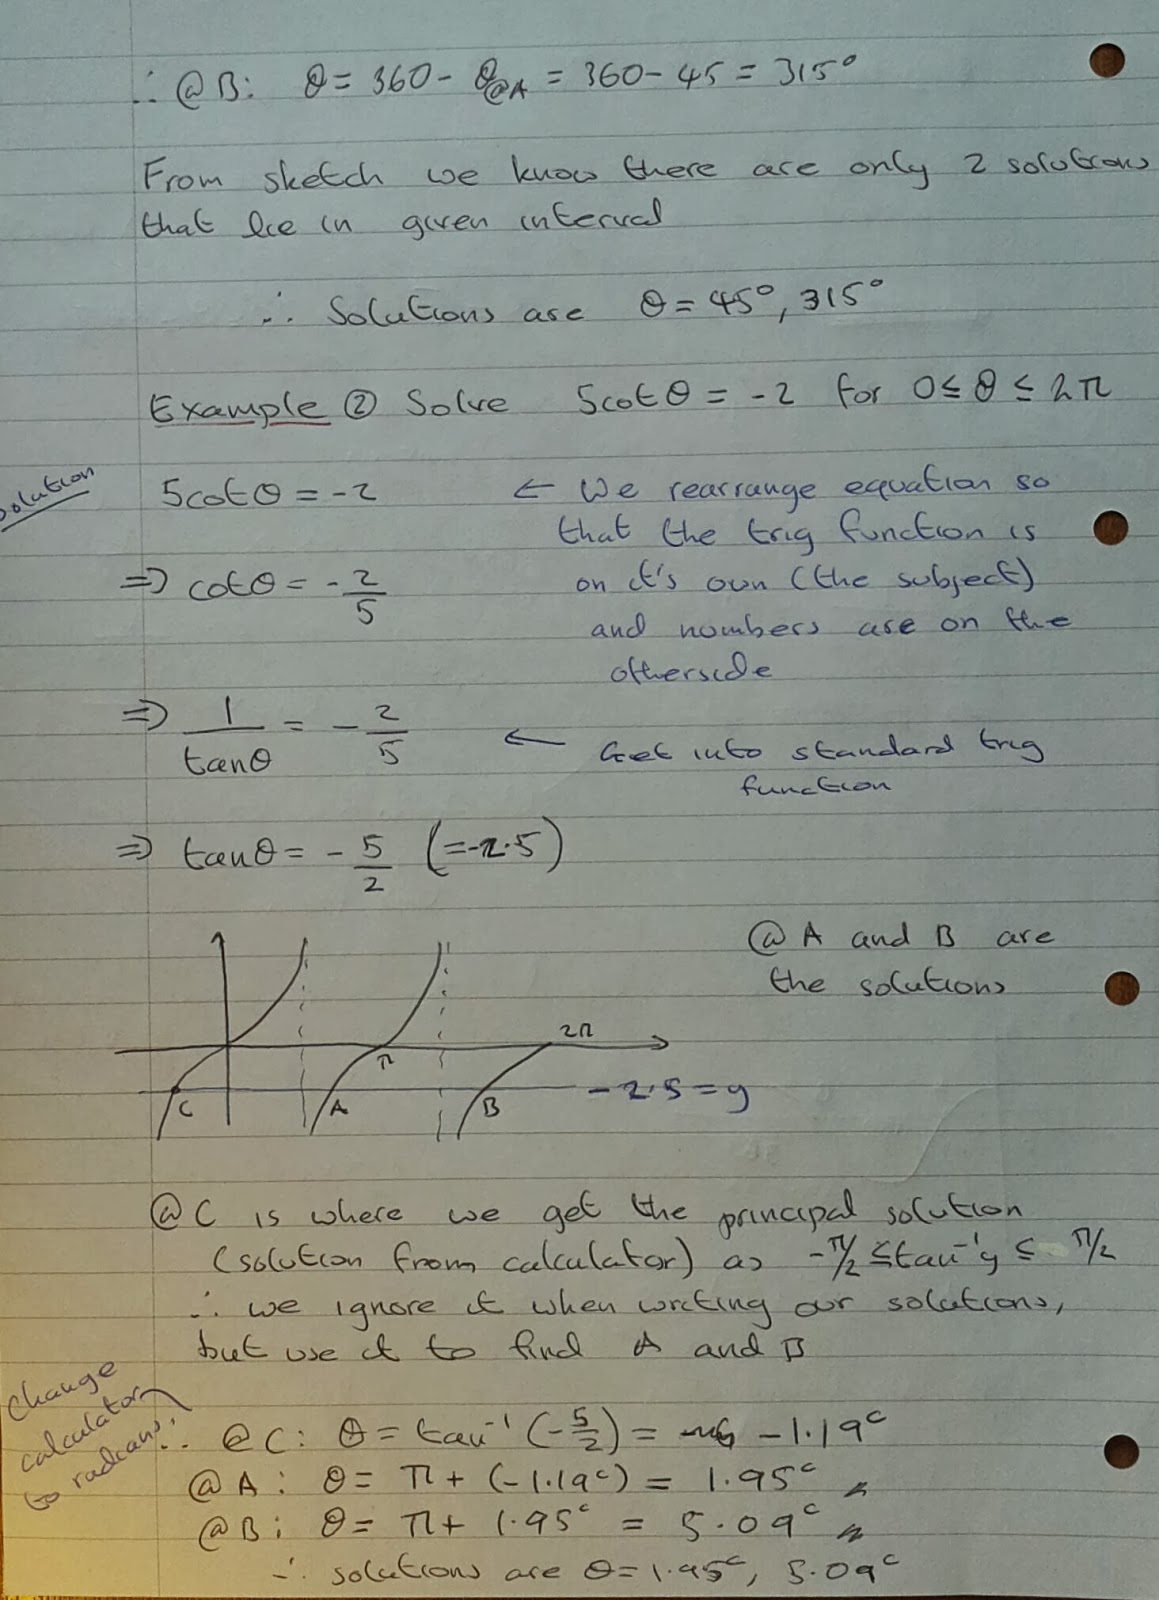 ∴ @ B: θ = 360 - θ@A = 360 - 45 = 315°
From sketch we know there are only 2 solutions
that lie in given interval
∴ Solutions are θ = 45°, 315°
Example ② Solve 5cotθ = -2 for 0 ≤ θ ≤ 2π
Solution
5cotθ = -2 ← We rearrange equation so
that the trig function is
⇒ cotθ = -2/5 on it's own (the subject)
and numbers are on the
otherside
⇒ 1/tanθ = -2/5 ← Get into standard trig
function
⇒ tanθ = -5/2 (=-2.5)
@ A and B are
the solutions
2π
π
C A B -2.5 = y
@ C is where we get the principal solution
(solution from calculator) as -π/2 ≤ tan⁻¹y ≤ π/2
∴ we ignore it when writing our solutions,
but use it to find A and B
Change
calculator
to radians!
∴ @ C: θ = tan⁻¹(-5/2) = -1.19ᶜ
@ A: θ = π + (-1.19ᶜ) = 1.95ᶜ
@ B: θ = π + 1.95ᶜ = 5.09ᶜ
∴ solutions are θ = 1.95ᶜ, 5.09ᶜ